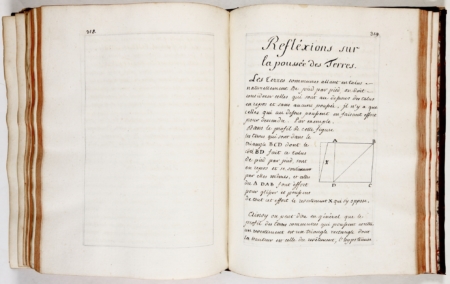 318.
319.
Refléxions sur
la poussée des Terres.
Les Terres communes allant en talus
naturellement de pied par pied, on doit
celles qui sont au dessous des talus
en repos et sans aucune poussée, il n'y a que
celles qui au dessus poussent en faisant effort
pour descendre. Par exemple.
Dans le profil de cette figure
les terres qui sont dans le
triangle BCD dont le
côté BD fait un talus
de pied par pied, sont
en repos et se soutiennent
par elles mêmes, et celles
de A DAB fait effort
pour glisser et poussent
de tout cet effort le revêtement X qui s'y oppose.
A
B
X
D
C
Ainsy on peut dire en général que le
profil des terres communes qui poussent contre
un revêtement est un triangle rectangle dont
la hauteur est celle du revêtement, l'hypoténuse